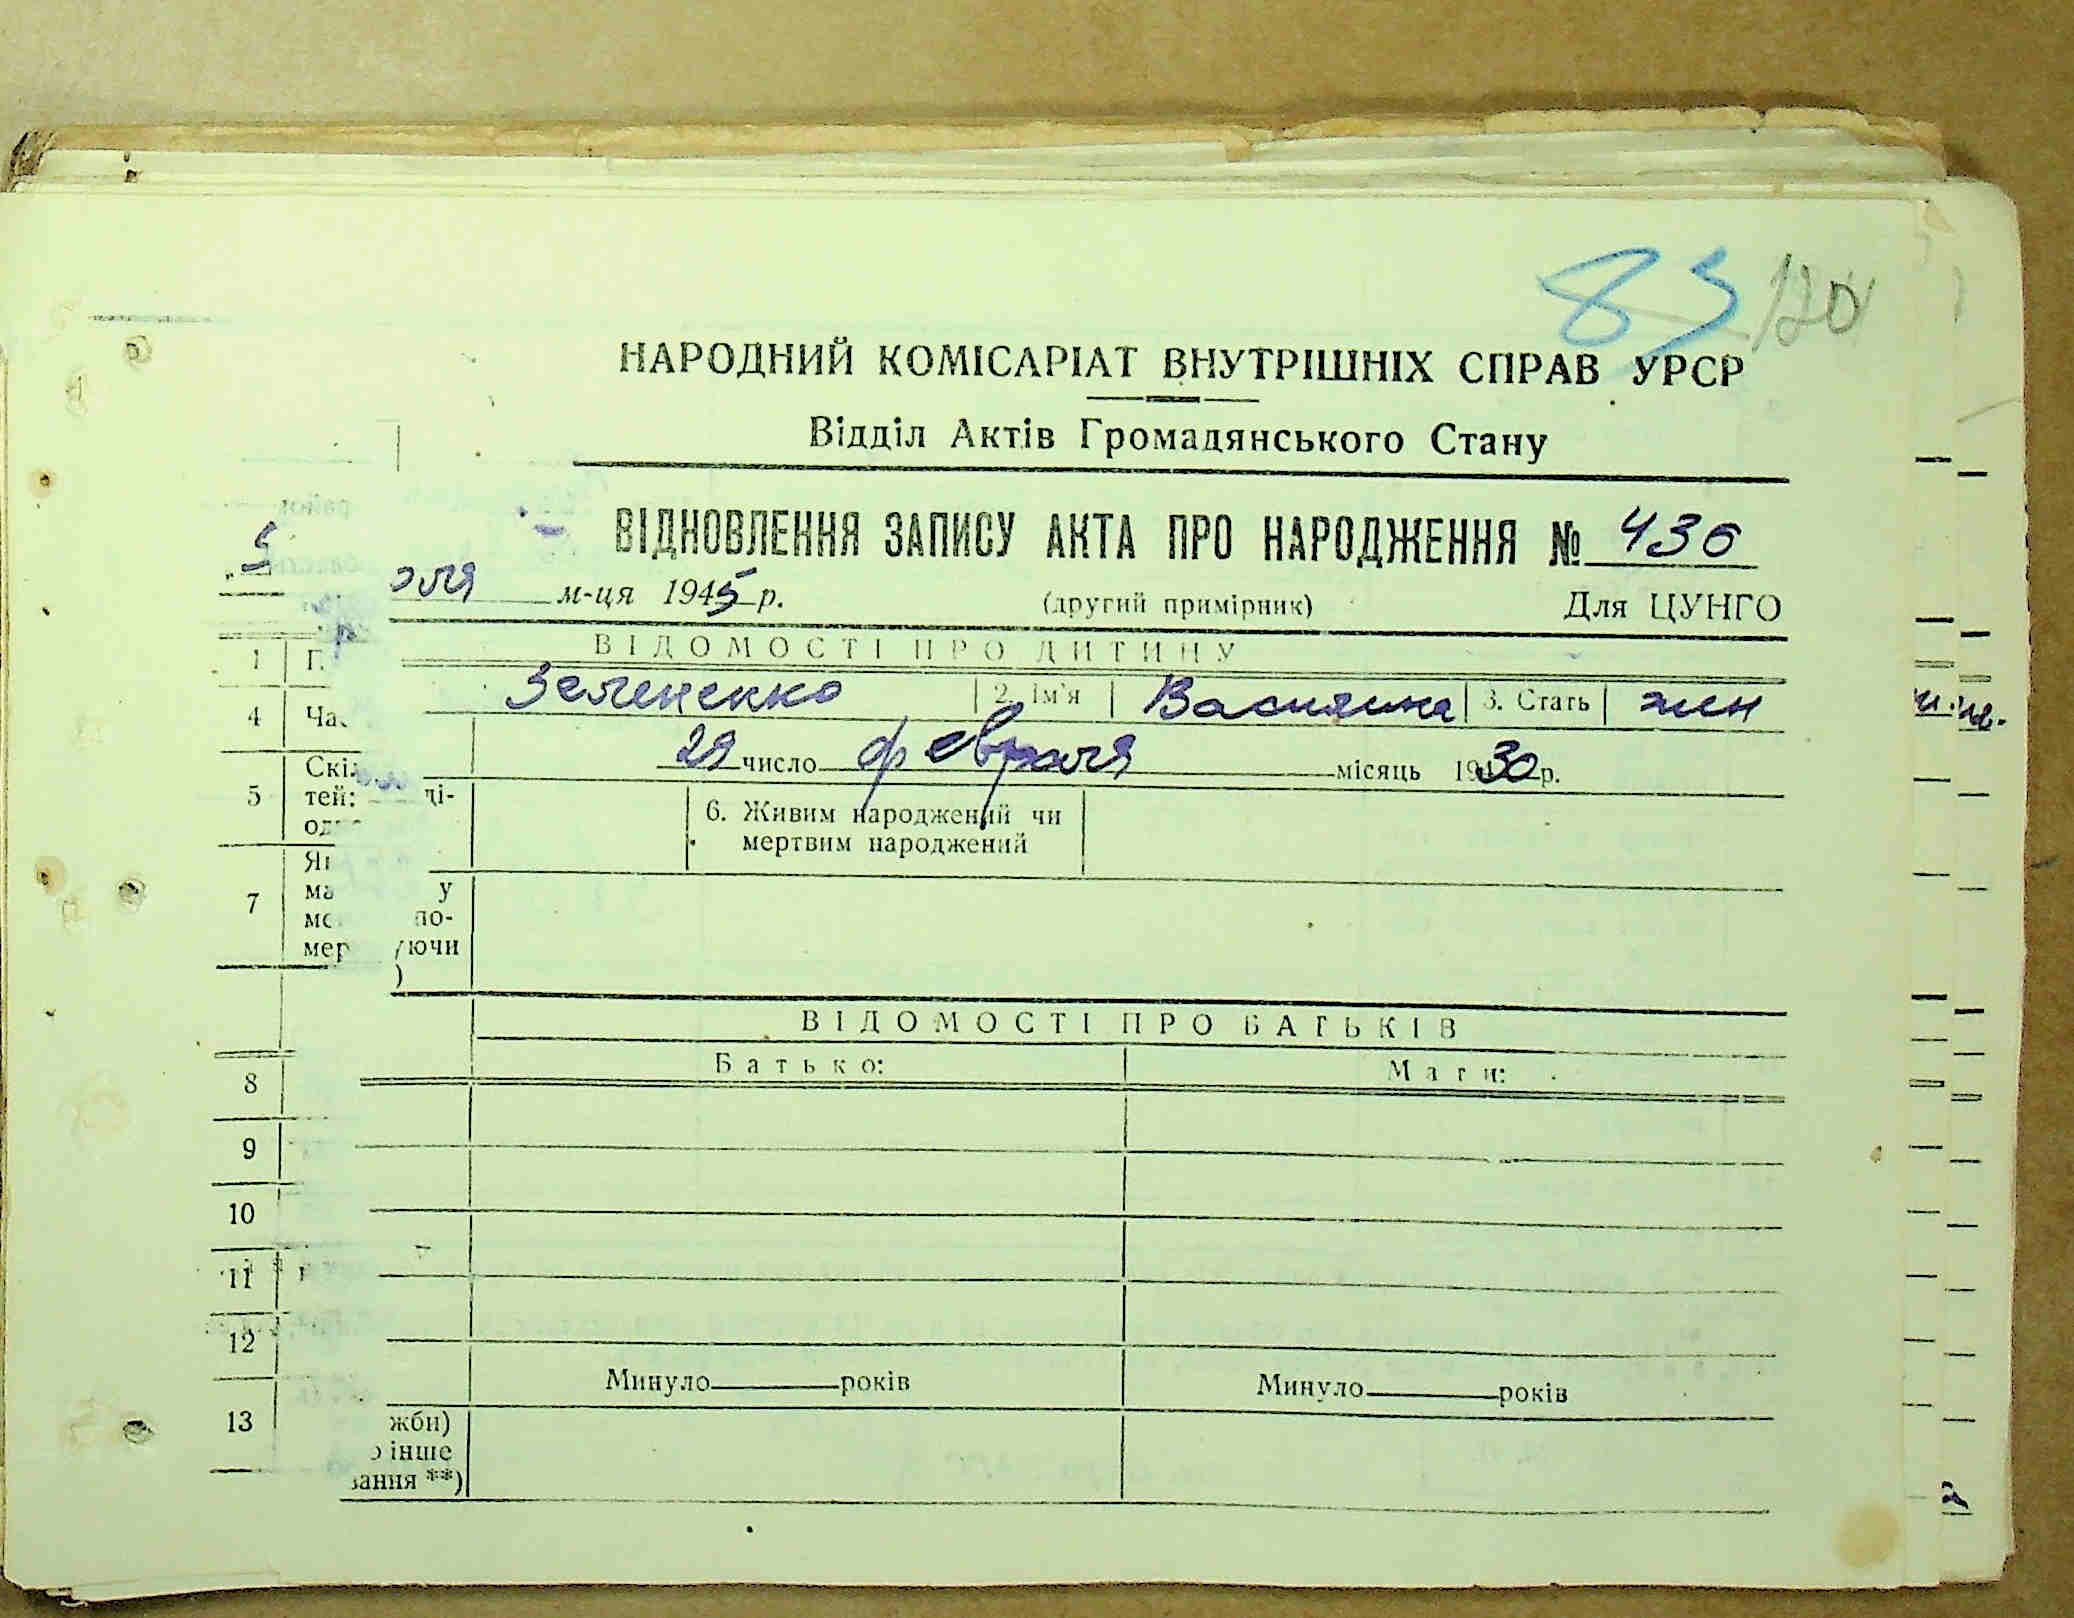 83 120
НАРОДНИЙ КОМІСАРІАТ ВНУТРІШНІХ СПРАВ УРСР
Відділ Актів Громадянського Стану
ВІДНОВЛЕННЯ ЗАПИСУ АКТА ПРО НАРОДЖЕННЯ № 436
юля м-ця 1945 р. (другий примірник) Для ЦУНГО
ВІДОМОСТІ ПРО ДИТИНУ
1 Зелененко 2. Ім'я Василина 3. Стать жен
4 29 число февраля місяць 1930 р.
5 6. Живим народжений чи
мертвим народжений
7 у
по-
ючи
)
ВІДОМОСТІ ПРО БАТЬКІВ
Батько: Мати:
8
9
10
11
12
Минуло років Минуло років
13 жби)
інше
вання **)